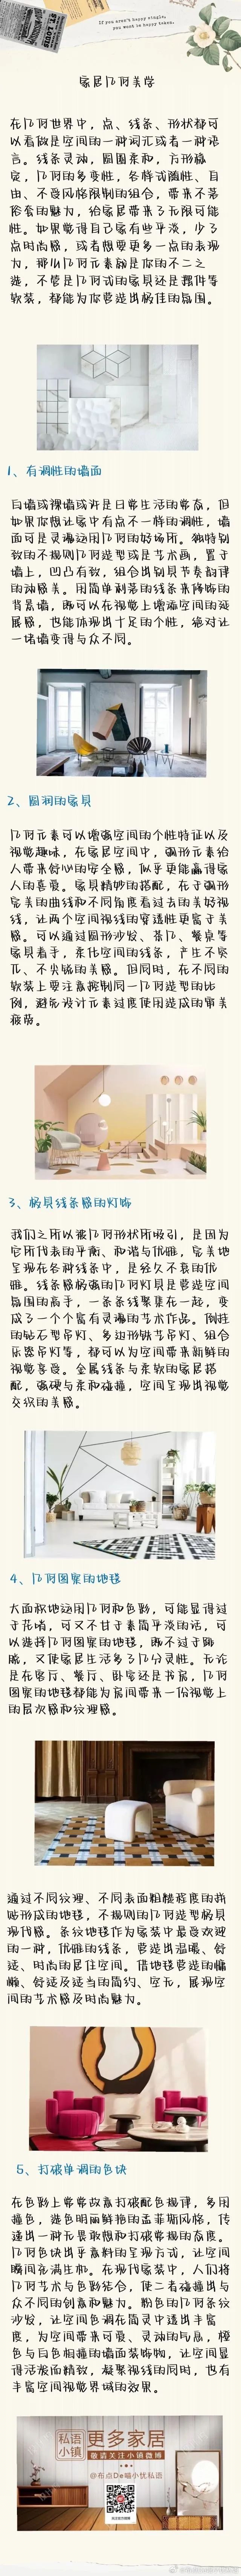 ST. LOUIS
If you aren't happy single,
you won't be happy taken.
家居几何美学
在几何世界中，点、线条、形状都可
以看做是空间的一种词汇或者一种语
言。线条灵动，圆圈柔和，方形稳
定，几何的多变性，各样式随性、自
由、不受风格限制的组合，带来不落
俗套的魅力，给家居带来了无限可能
性。如果觉得自己家有些平淡，少了
点时尚感，或者想要更多一点的表现
力，那么几何元素就是你的不二之
选，不管是几何式的家具还是摆件等
软装，都能为你营造出极佳的氛围。
1、有调性的墙面
白墙或裸墙或许是日常生活的常态，但
如果你想让家中有点不一样的调性，墙
面可是灵活运用几何的好场所。独特别
致的不规则几何造型或是艺术画，置于
墙上，凹凸有致，组合出别具节奏韵律
的动感美。用简单利落的线条来修饰的
背景墙，既可以在视觉上增添空间的延
展感，也能体现出十足的个性，绝对让
一堵墙变得与众不同。
2、圆润的家具
几何元素可以增强空间的个性特征以及
视觉趣味，在家居空间中，弧形元素给
人带来舒心的安全感，似乎更能赢得家
人的喜爱。家具精妙的搭配，在于弧形
完美的曲线和不同角度看过去的美好视
线，让两个空间视线的穿透性更富于美
感。可以通过圆形沙发、茶几、餐桌等
家具着手，柔化空间的线条，产生不突
兀、不尖锐的美感。但同时，在不同的
软装上要注意控制同一几何造型的比
例，避免设计元素过度使用造成的审美
疲劳。
3、极具线条感的灯饰
我们之所以被几何形状所吸引，是因为
它所代表的平衡、和谐与优雅，完美地
呈现在各种线条中，是经久不衰的优
雅。线条感极强的几何灯具是营造空间
氛围的高手，一条条线聚集在一起，变
成了一个个富有灵魂的艺术作品。倒挂
的钻石型吊灯、多边形铁艺吊灯、组合
乐器吊灯等，都可以为空间带来新鲜的
视觉享受。金属线条与柔软的家居搭
配，强硬与柔和碰撞，空间呈现出视觉
交织的美感。
4、几何图案的地毯
大面积地运用几何和色彩，可能显得过
于花哨，可又不甘于素简平淡的话，可
以选择几何图案的地毯，既不过于跳
脱，又使家居生活多了几分灵性。无论
是在客厅、餐厅、卧室还是书房，几何
图案的地毯都能为房间带来一份视觉上
的层次感和纹理感。
通过不同纹理、不同表面粗糙程度的拼
贴形成的地毯，不规则的几何造型极具
现代感。条纹地毯作为家装中最受欢迎
的一种，优雅的线条，营造出温暖、舒
适、时尚的居住空间。借地毯营造的慵
懒、舒适及适当的简约、空无，展现空
间的艺术感及时尚魅力。
5、打破单调的色块
在色彩上常常故意打破配色规律，多用
撞色，选色明丽鲜艳的孟菲斯风格，传
递出一种无畏联想和打破常规的态度。
几何色块出乎意料的呈现方式，让空间
瞬间充满生机。在现代家装中，人们将
几何艺术与色彩结合，使二者碰撞出与
众不同的创意和魅力。粉色的几何条纹
沙发，让空间色调在简灵中透出丰富
度，为空间带来可爱、灵动的气息，橙
色与白色相撞的墙面装饰物，让空间显
得活泼而精致，凝聚视线的同时，也有
丰富空间视觉界域的效果。
私语
小镇
更多家居
敬请关注小镇微博
@布点De喵小忧私语